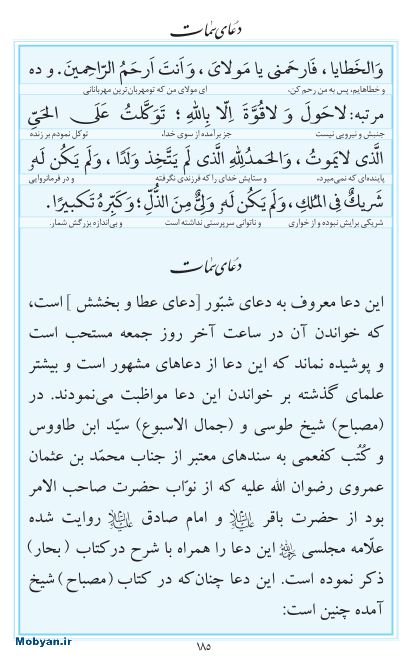 دعای سمات
وَالخَطایا ، فَارحَمنی یا مَولایَ ، وَ اَنتَ اَرحَمُ الرّاحِمینَ. و ده
و خطاهایم، پس به من رحم کن، ای مولای من که تو مهربان‌ترین مهربانانی
مرتبه: لا حَولَ وَ لا قُوَّةَ اِلّا بِاللهِ ؛ تَوَکَّلتُ عَلَی الحَیِّ
جنبش و نیرویی نیست جز برآمده از سوی خدا، توکل نمودم بر زنده
الَّذی لا یَموتُ ، وَالحَمدُ لِلّهِ الَّذی لَم یَتَّخِذ وَلَدًا ، وَلَم یَکُن لَهُ
پاینده‌ای که نمی‌میرد، و ستایش خدای را که فرزندی نگرفته و در فرمانروایی
شَریکٌ فِی المُلکِ ، وَلَم یَکُن لَهُ وَلِیٌّ مِنَ الذُّلِّ ؛ وَکَبِّرهُ تَکبیرًا .
شریکی برایش نبوده و از خواری و ناتوانی سرپرستی نداشته است و بی‌اندازه بزرگش شمار.
دعای سمات
این دعا معروف به دعای شبّور [دعای عطا و بخشش ] است،
که خواندن آن در ساعت آخر روز جمعه مستحب است
و پوشیده نماند که این دعا از دعاهای مشهور است و بیشتر
علمای گذشته بر خواندن این دعا مواظبت می‌نمودند. در
(مصباح) شیخ طوسی و (جمال الاسبوع) سیّد ابن طاووس
و کُتُب کفعمی به سندهای معتبر از جناب محمّد بن عثمان
عمروی رضوان الله علیه که از نوّاب حضرت صاحب الامر
بود از حضرت باقر علیه السلام و امام صادق علیه السلام روایت شده
علّامه مجلسی رحمه الله این دعا را همراه با شرح در کتاب (بحار)
ذکر نموده است. این دعا چنان‌که در کتاب (مصباح) شیخ
آمده چنین است:
۱۸۵
Mobyan.ir